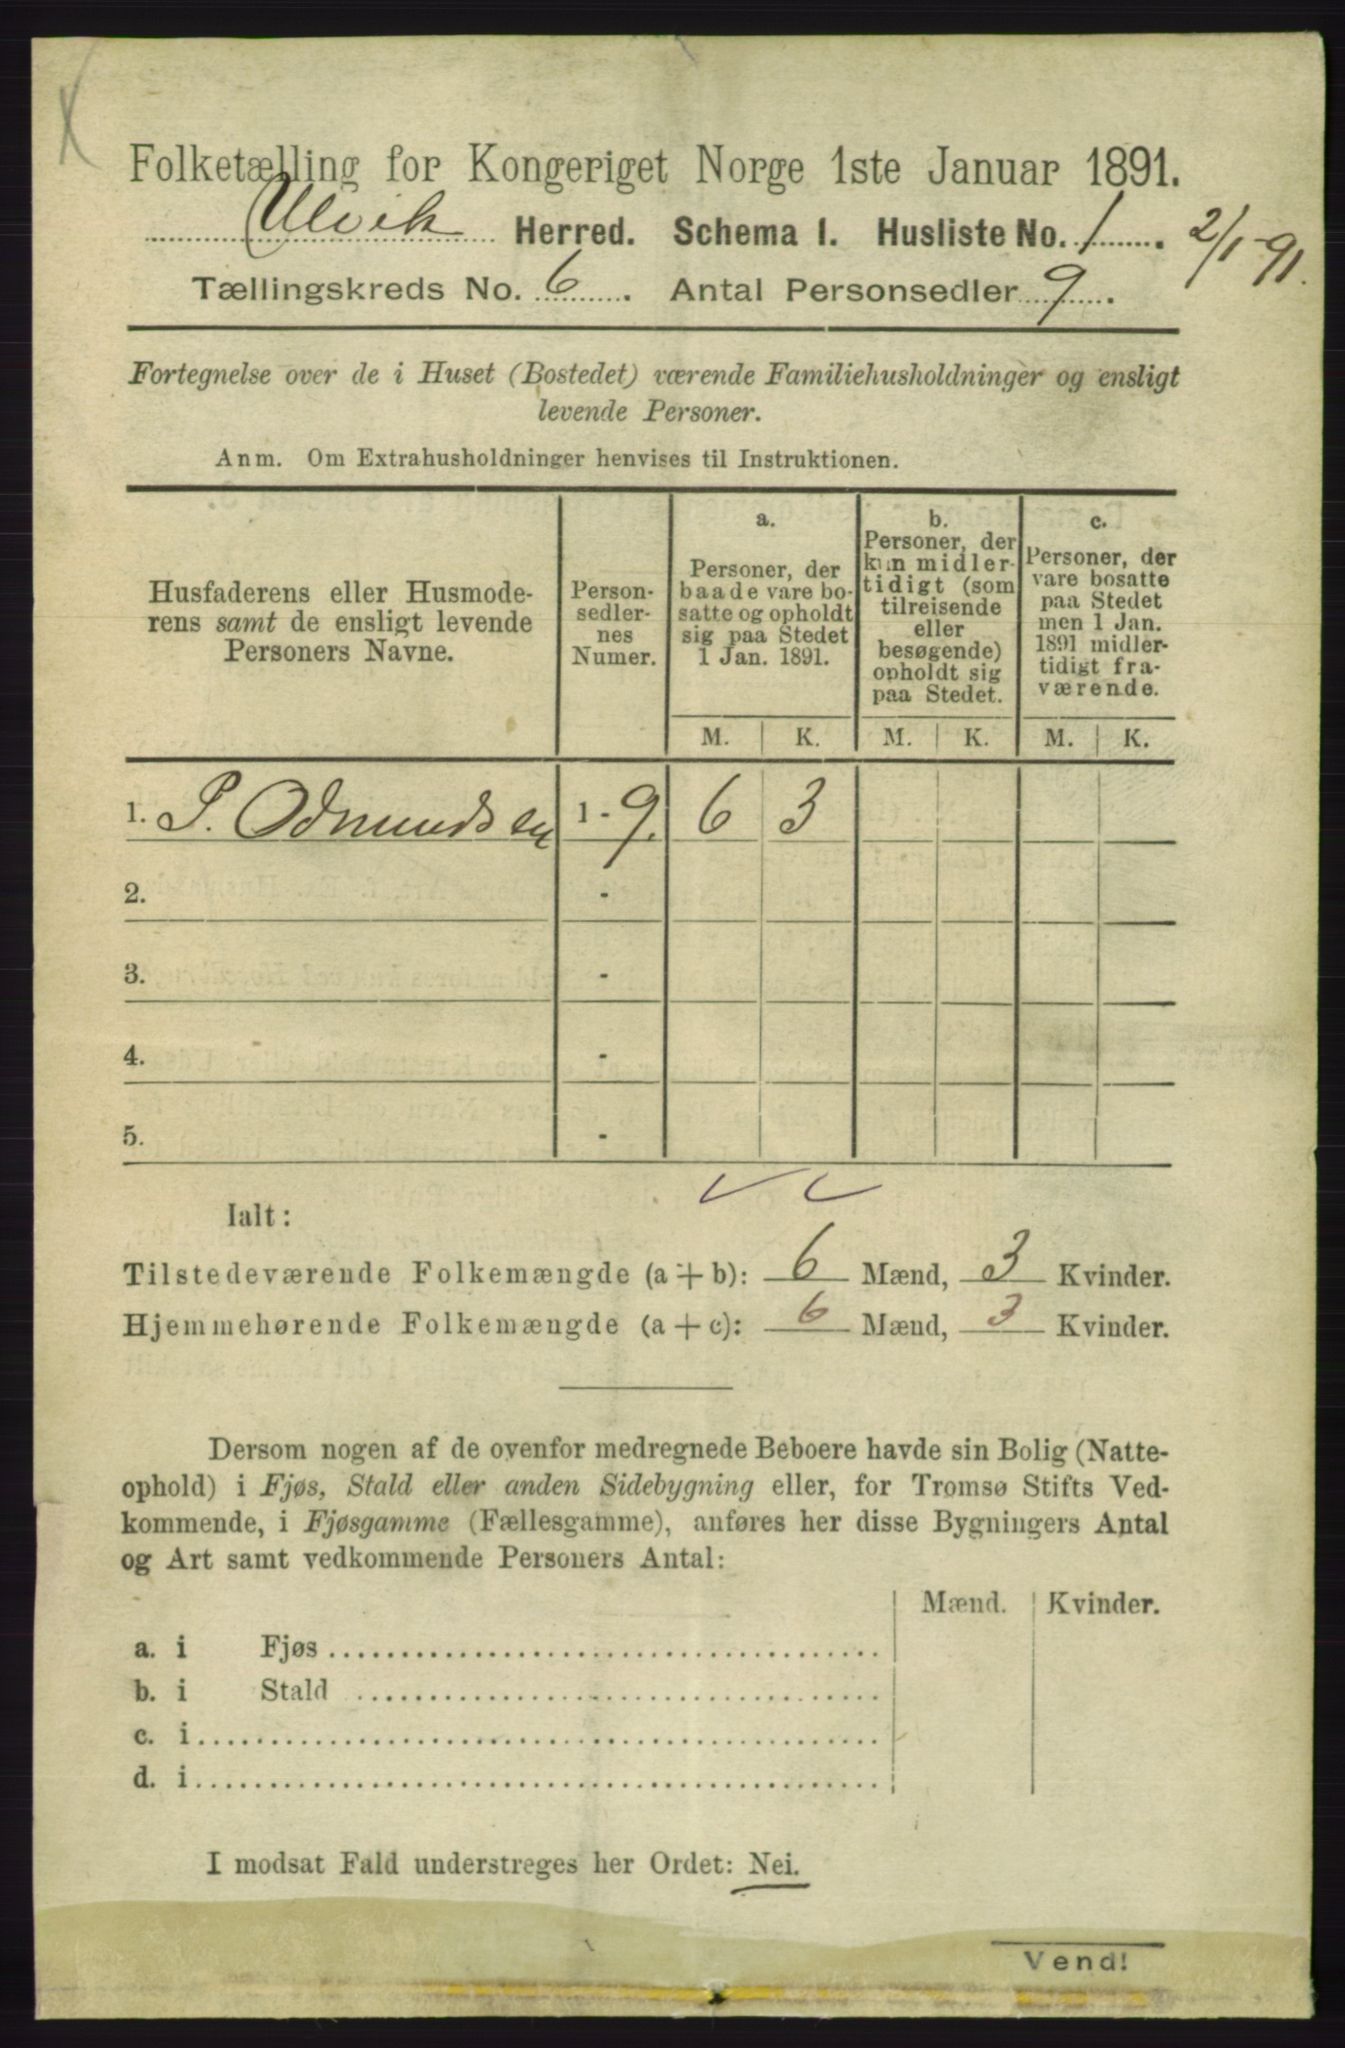 Folketælling for Kongeriget Norge 1ste Januar 1891.
Ulvik Herred. Schema I. Husliste No. 1. 2/1-91.
Tællingskreds No. 6. Antal Personsedler 9.
Fortegnelse over de i Huset (Bostedet) værende Familiehusholdninger og ensligt
levende Personer.
Anm. Om Extrahusholdninger henvises til Instruktionen.
Husfaderens eller Husmode-
rens samt de ensligt levende
Personers Navne.
Person-
sedler-
nes
Numer.
a.
Personer, der
baade vare bo-
satte og opholdt
sig paa Stedet
1 Jan. 1891.
b.
Personer, der
kun midler-
tidigt (som
tilreisende
eller
besøgende)
opholdt sig
paa Stedet.
c.
Personer, der
vare bosatte
paa Stedet
men 1 Jan.
1891 midler-
tidigt fra-
værende.
M. K. M. K. M. K.
1. P. Odmundsen 1 - 9. 6 3
2. -
3. -
4. -
5. -
Ialt:
Tilstedeværende Folkemængde (a + b): 6 Mænd, 3 Kvinder.
Hjemmehørende Folkemængde (a + c): 6 Mænd, 3 Kvinder.
Dersom nogen af de ovenfor medregnede Beboere havde sin Bolig (Natte-
ophold) i Fjøs, Stald eller anden Sidebygning eller, for Tromsø Stifts Ved-
kommende, i Fjøsgamme (Fællesgamme), anføres her disse Bygningers Antal
og Art samt vedkommende Personers Antal:
Mænd. Kvinder.
a. i Fjøs
b. i Stald
c. i
d. i
I modsat Fald understreges her Ordet: Nei.
Vend!